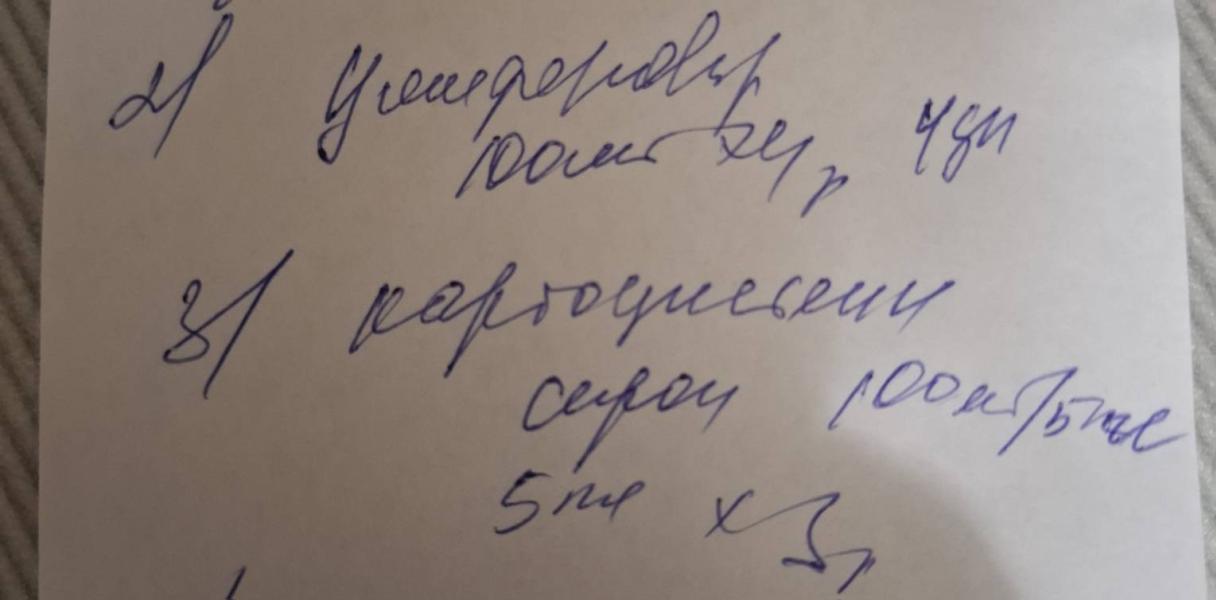 2) Умифеновир
100мг х 4 р 4 дн
3) карбоцистеин
сироп 100мг/5мл
5мл х 3 р